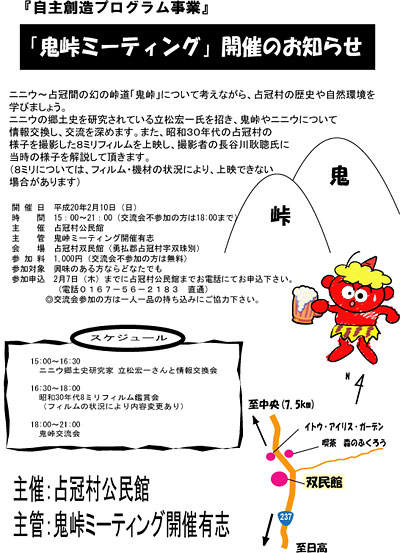 『自主創造プログラム事業』
「鬼峠ミーティング」開催のお知らせ
ニニウ～占冠間の幻の峠道「鬼峠」について考えながら、占冠村の歴史や自然環境を
学びましょう。
ニニウの郷土史を研究されている立松宏一氏を招き、鬼峠やニニウについて
情報交換し、交流を深めます。また、昭和30年代の占冠村の
様子を撮影した8ミリフィルムを上映し、撮影者の長谷川耿聰氏に
当時の様子を解説して頂きます。
（8ミリについては、フィルム・機材の状況により、上映できない
場合があります）
鬼
峠
開 催 日　平成20年2月10日（日）
時　　間　15：00～21：00（交流会不参加の方は18:00まで）
主　　催　占冠村公民館
主　　管　鬼峠ミーティング開催有志
会　　場　占冠村双民館（勇払郡占冠村字双珠別）
参 加 料　1,000円（交流会不参加の方は無料）
参加対象　興味のある方ならどなたでも
参加申込　2月7日（木）までに占冠村公民館までお電話にてお申込下さい。
（電話０１６７－５６－２１８３　直通）
◎交流会参加の方は一人一品の持ち込みにご協力下さい。
スケジュール
15:00～16:30
ニニウ郷土史研究家 立松宏一さんと情報交換会
16:30～18:00
昭和30年代8ミリフィルム鑑賞会
（フィルムの状況により内容変更あり）
18:00～21:00
鬼峠交流会
N
至中央(7.5km)
イトウ・アイリス・ガーデン
喫茶　森のふくろう
双民館
237
至日高
主催：占冠村公民館
主管：鬼峠ミーティング開催有志